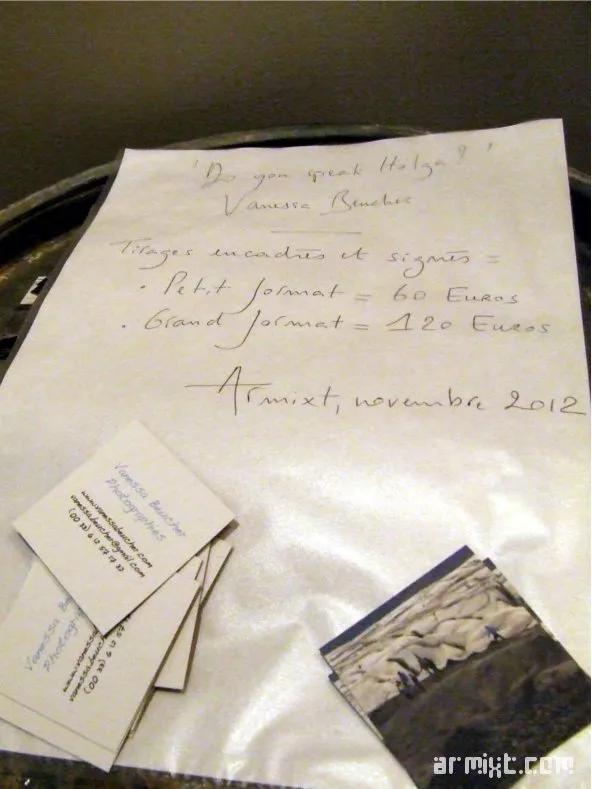 "Do you speak Holga?"
Vanessa Beucher
Tirages encadrés et signés =
• Petit format = 60 Euros
• Grand format = 120 Euros
Armixt, novembre 2012
Vanessa Beucher
Photographies
www.vanessabeucher.com
vanessabeucher@gmail.com
(00 33) 6 12 57 17 33
Vanessa Be
Photograph
www.vaness
vanessabeuc
(00 33) 6 12 57
armixt.com